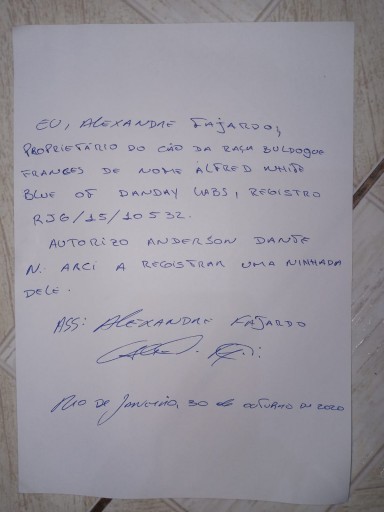 EU, ALEXANDRE FAJARDO,
PROPRIETÁRIO DO CÃO DA RAÇA BULDOGUE
FRANGES DE NOME ALFRED WHITE
BLUE OF DANDAY LABS, REGISTRO
RJG/15/10532.
AUTORIZO ANDERSON DANTE
N. ARCI A REGISTRAR UMA NINHADA
DELE.
ASS: ALEXANDRE FAJARDO
RIO DE JANEIRO, 30 de OUTUBRO DE 2020